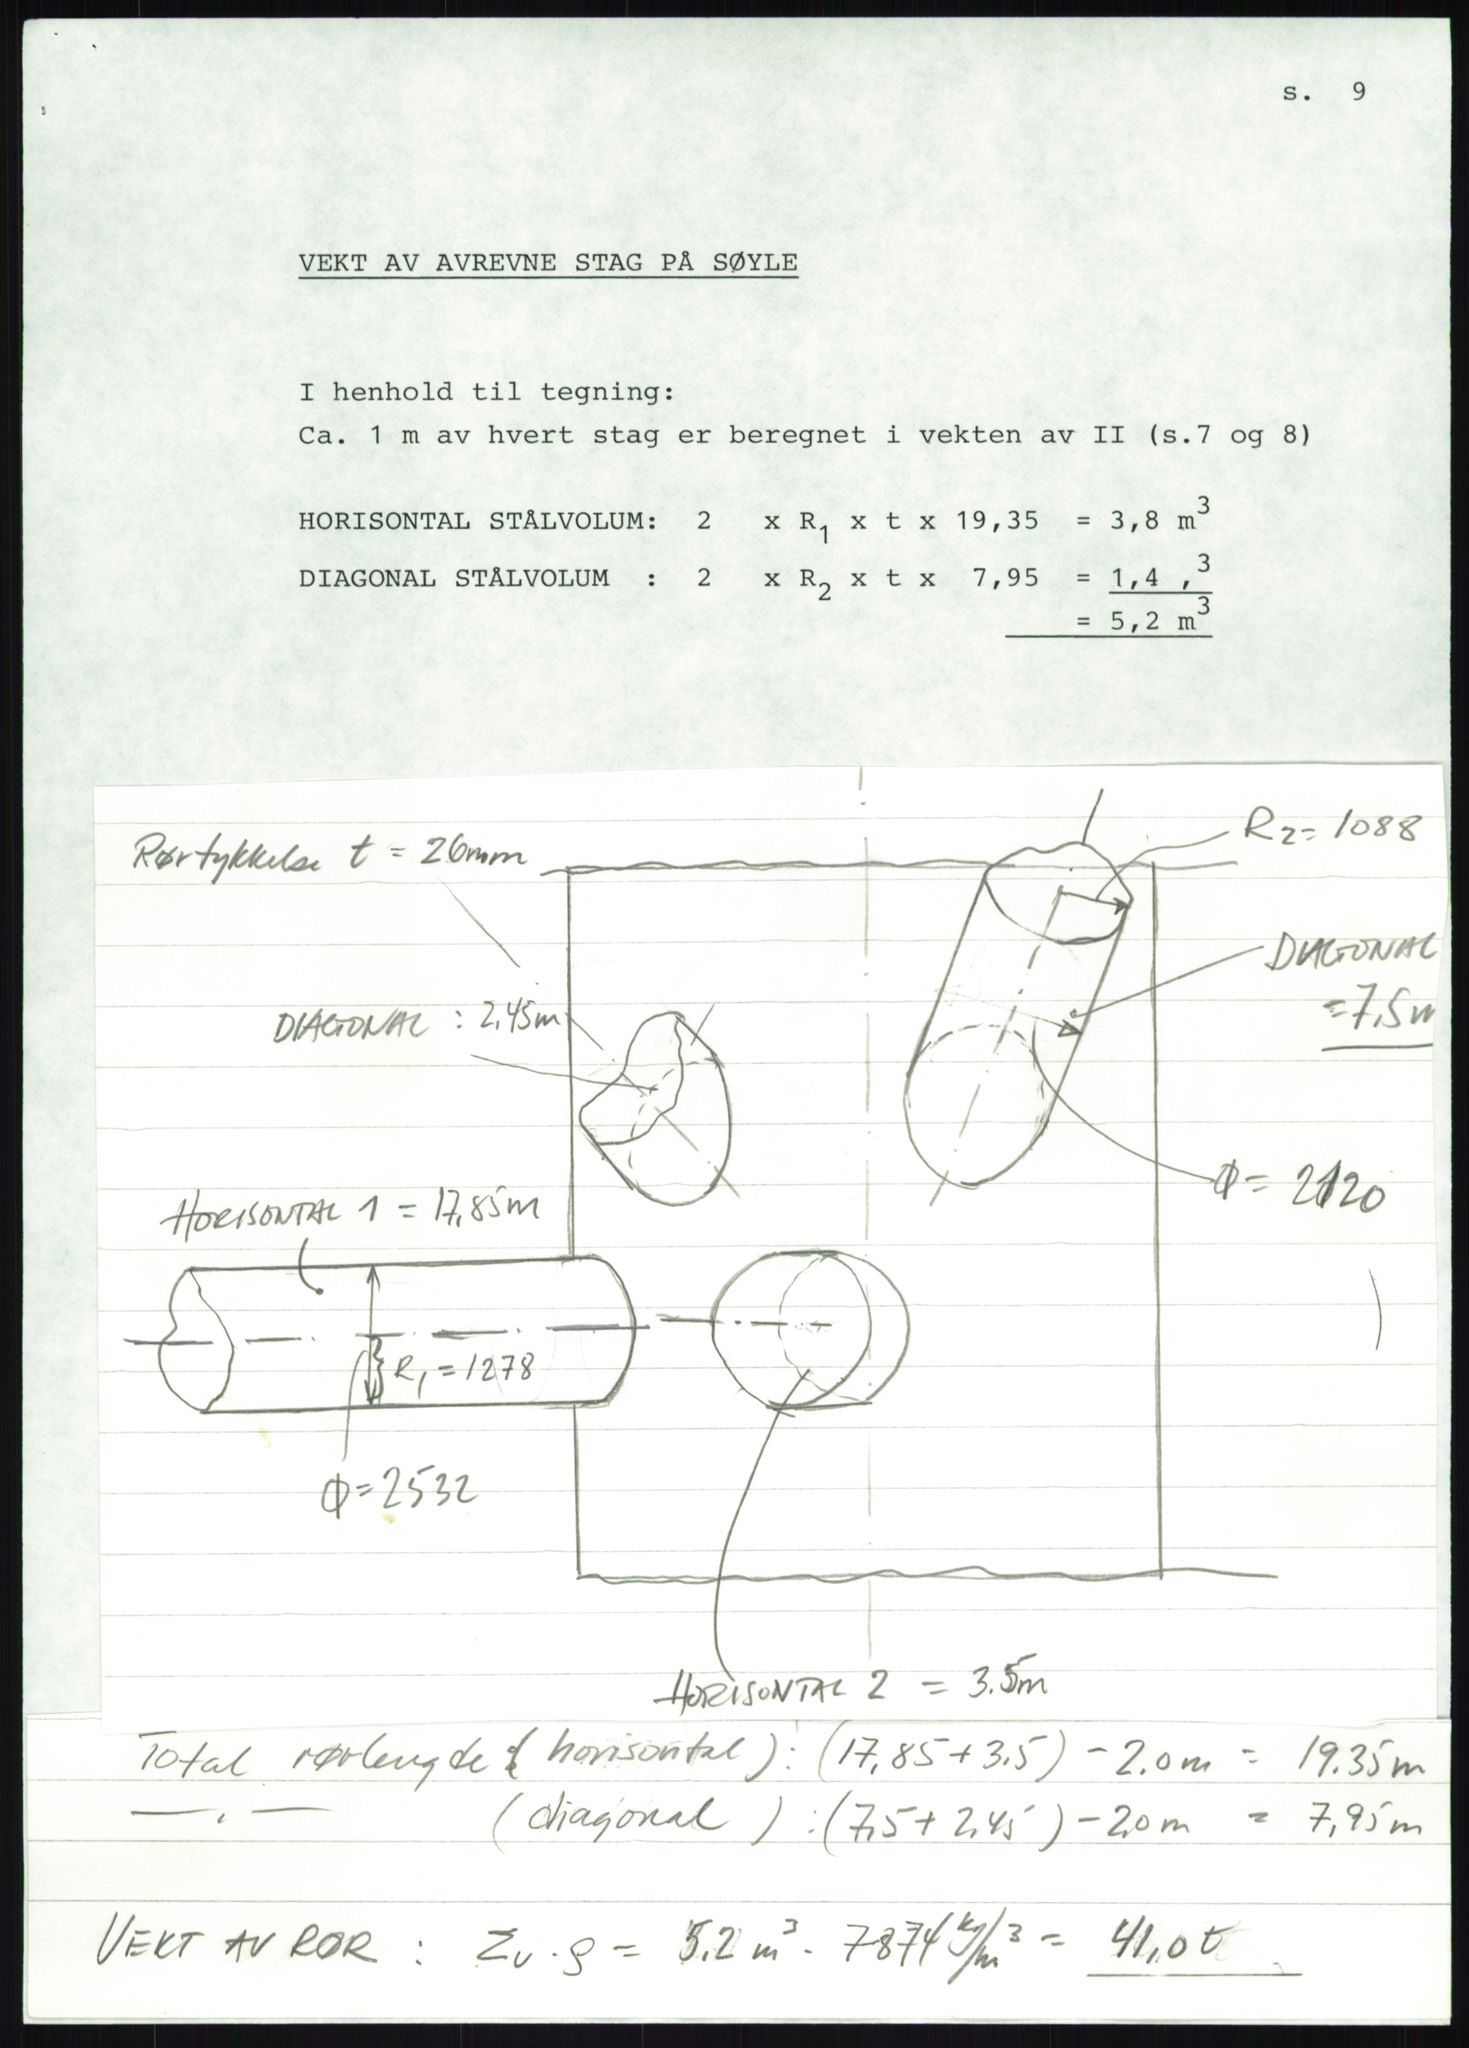 s. 9
VEKT AV AVREVNE STAG PÅ SØYLE
I henhold til tegning:
Ca. 1 m av hvert stag er beregnet i vekten av II (s.7 og 8)
HORISONTAL STÅLVOLUM: 2 x R₁ x t x 19,35 = 3,8 m³
DIAGONAL STÅLVOLUM : 2 x R₂ x t x 7,95 = 1,4 ,³
= 5,2 m³
Rørtykkelse t = 26mm
R₂= 1088
DIAGONAL
=7,5m
DIAGONAL : 2,45m
Ø= 2120
HORISONTAL 1 = 17,85m
R₁ = 1278
Ø=2532
HORISONTAL 2 = 3.5m
Total rørlengde (horisontal): (17,85+3.5) - 2.0m = 19.35m
— . — (diagonal) : (7,5 + 2,45) - 2.0m = 7,95m
VEKT AV RØR : Σv · ρ = 5.2 m³ · 7874 kg/m³ = 41,0 t